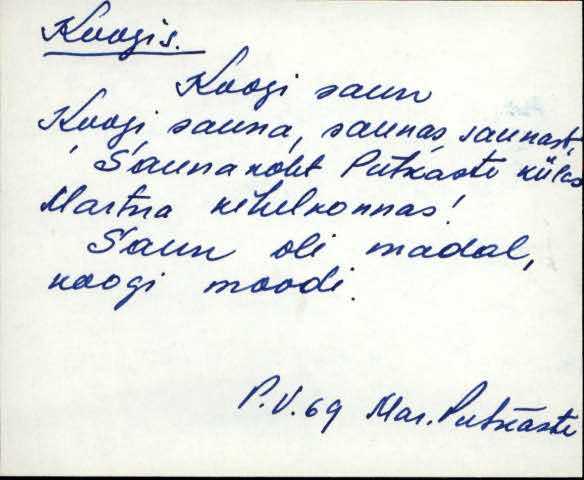 Koogis.
Koogi saun
Koogi, sauna, saunas, saunast,
Saunakoht Putkaste külas
Martna kihelkonnas!
Saun oli madal,
koogi moodi.
P.V. 69 Mar. Putkaste